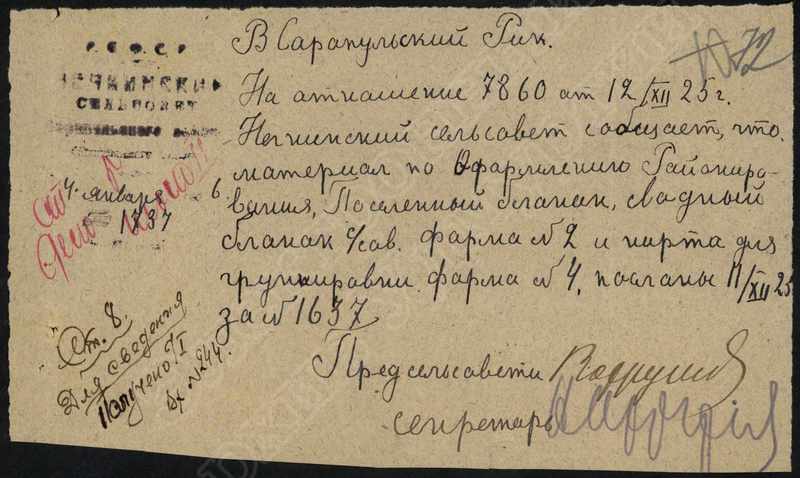 Р.С.Ф.С.Р.
НЕЧКИНСКИЙ
СЕЛЬСОВЕТ
Сарапульского
4 января 6
1837
72
В Сарапульский Рик.
На отношение 7860 от 12/XII 25 г.
Нечкинский сельсовет сообщает, что
материал по Оформлению Райониро-
вания, Поселенный бланок, сводный
бланок с/сов. форма № 2 и карта для
группировки форма № 4, посланы 11/XII 25
за № 1637
Предсельсовета
секретарь
Ст. 8.
Для сведения
Получено 7/I
Вх № 244.
дело